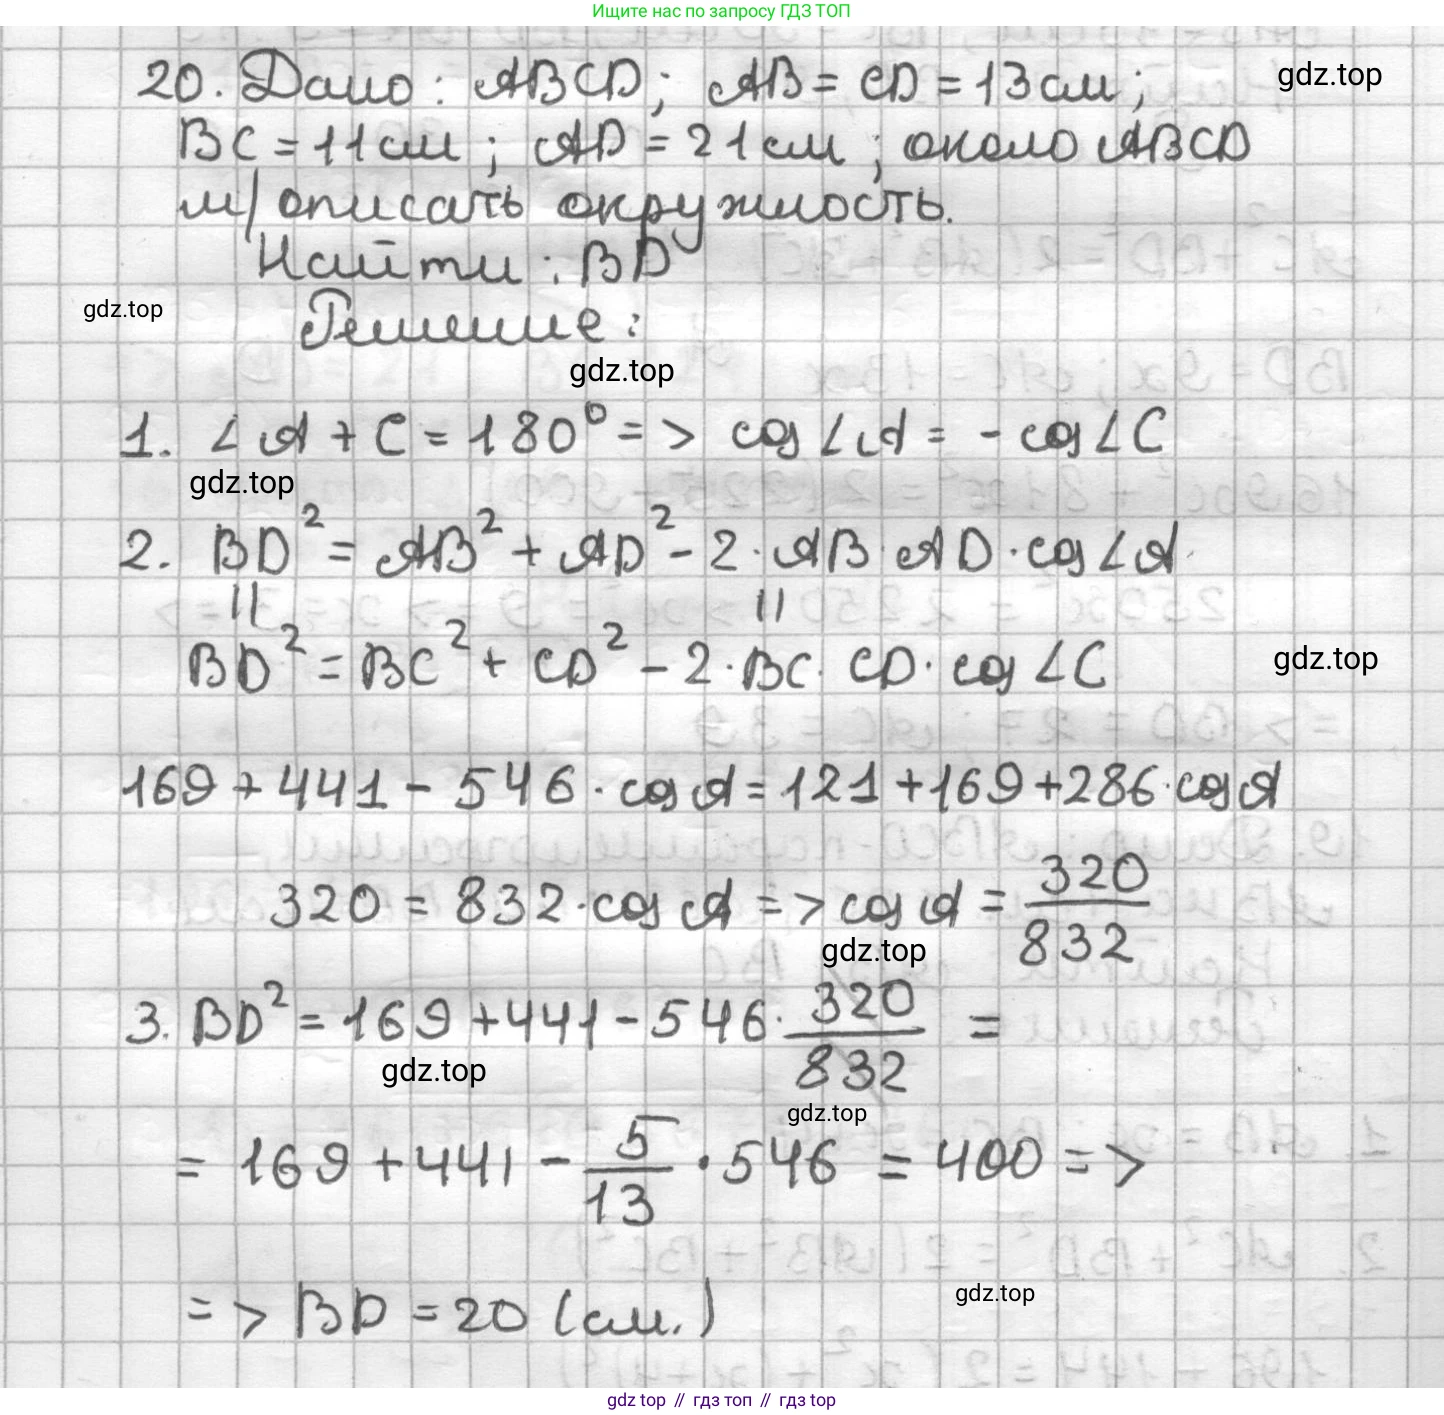 Ищите нас по запросу ГДЗ ТОП
20. Дано: ABCD; AB = CD = 13 см;
gdz.top
BC = 11 см; AD = 21 см; около ABCD
м/ описать окружность.
Найти: BD
gdz.top
Решение:
gdz.top
1. ∠A + C = 180° => cos∠A = - cos∠C
gdz.top
2. BD² = AB² + AD² - 2·AB·AD·cos∠A
|| ||
BD² = BC² + CD² - 2·BC·CD·cos∠C
gdz.top
169 + 441 - 546·cos A = 121 + 169 + 286·cos A
320 = 832·cos A => cos A = 320/832
gdz.top
3. BD² = 169 + 441 - 546·320/832 =
gdz.top
gdz.top
= 169 + 441 - 5/13 · 546 = 400 =>
gdz.top
=> BD = 20 (см.)
gdz top // гдз топ // гдз top